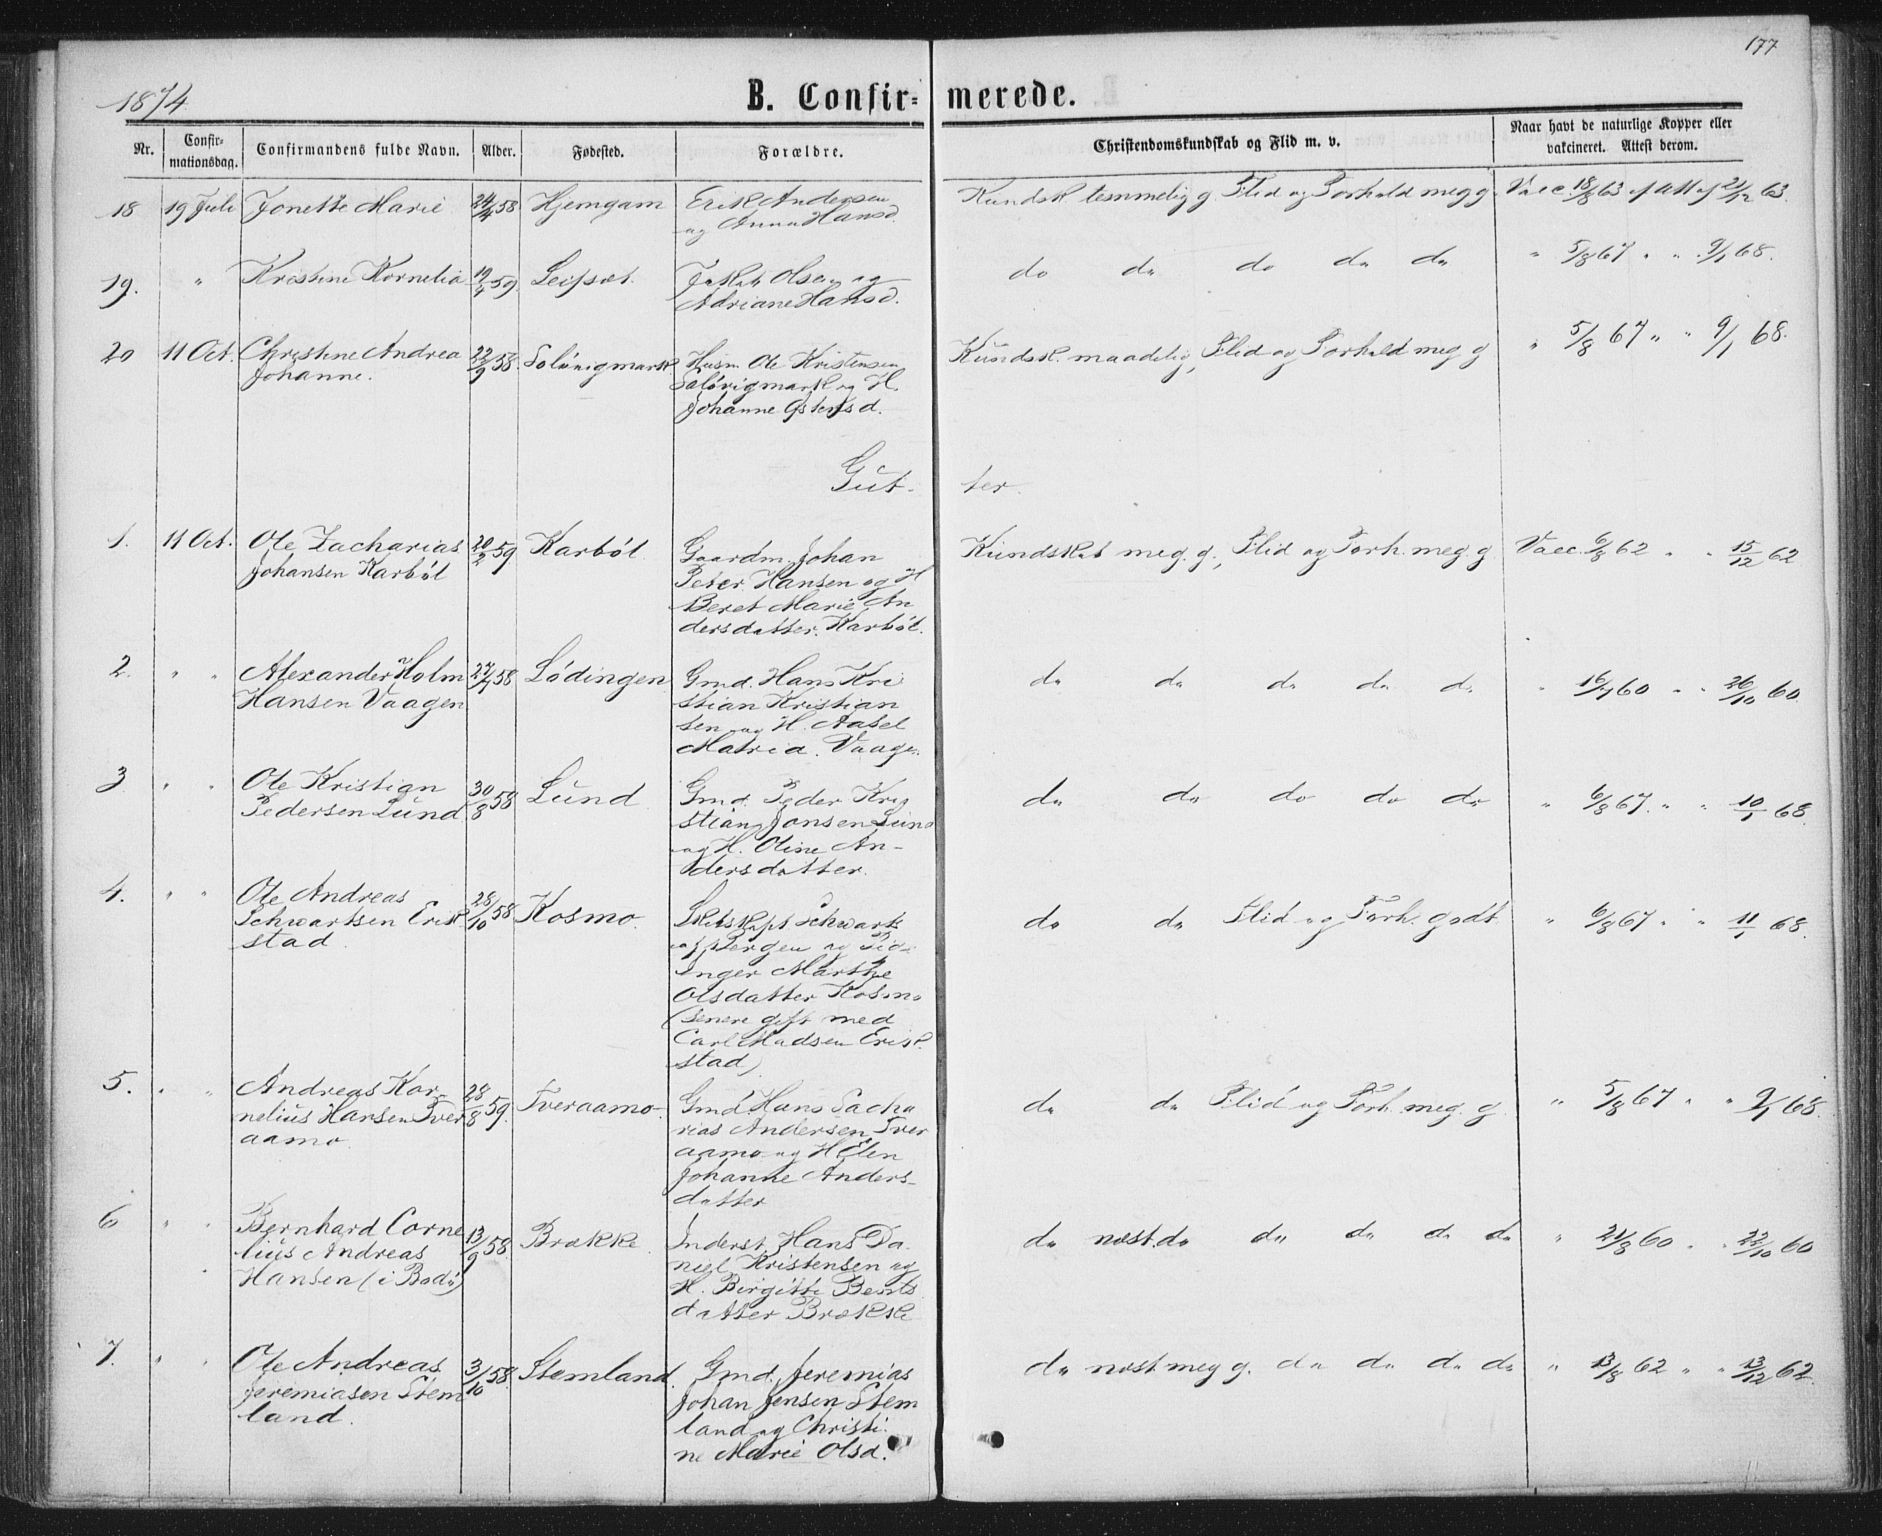 177
1874
B. Confir- merede.
Nr. Confir-mationsdag. Confirmandens fulde Navn. Alder. Fødested. Forældre. Christendomskundskab og Flid m. v. Naar havt de naturlige Kopper eller vakcineret. Attest derom.
18 19 Juli Jonette Marie 24/4 58 Hjemgam Erik Andersen Kundsk. temmelig g. Flid og Forhold meg g. Vacc. 18/8 63 att 21/12 63.
og Anna Hansd.
19. " Kristine Kornelia 19/4 59 Leifset. Jakob Olsen og do do do do do " 5/8 67 " " 9/1 68.
Adriane Hansd.
20 11 Oct. Christine Andrea 22/9 58. Solövigmark Husm. Ole Kristensen Kundsk. maadelig, Flid og Forhold meg g " 5/8 67 " " 9/1 68.
Johanne. Solövigmark og H.
Johanne Ostensd.
Gut- ter.
1. 11 Oct. Ole Zacharias 20/2 59 Karböl Gaardm. Johan Kundskab meg. g., Flid og Forh. meg. g. Vacc. 6/8 62 " " 15/12 62
Johansen Karböl Peter Hansen og H
Beret Marie An
dersdatter. Karböl.
2. " " Alexander Holm 27/7 58 Lödingen Gmd. Hans Kri do do do do do " 16/7 60 " " 26/10 60.
Hansen Vaagen stian Kristian
sen og H.
3 " " Ole Kristian 30/8 58 Lund Gmd. Peder Kri do do do do do " 6/8 67. " " 10/1 68.
Pedersen Lund stian Jonsen Lund
og H. Oline An-
dersdatter.
4. " " Ole Andreas 28/10 58 Kosmo. Schwarts do do Flid og Forh. godt " 6/8 67 " " 11/1 68.
Schwartsen Erik af Bergen og Pige
stad. Inger Marthe
Olsdatter Kosmo
(senere gift med
Carl Madsen Erik
stad)
5. " " Andreas Kor 28/8 59. Tveraamo. Gmd Hans Sacha do do Flid og Forh. meg. g. " 5/8 67 " " 9/1 68.
nelius Hansen Tver rias Andersen Tver
aamo. aamo og H Elen
Johanne Anders-
datter
6 " " Bernhard Corne 13/9 58. Brække. Inderst. Hans Da do næst. do do do do do " 21/8 60 " " 22/10 60
lius Andreas niel Kristensen og
Hansen (i Bodö) H. Birgitte Bents
datter Brække
7. " " Ole Andreas 3/10 58. Stemland. Gmd. Jeremias do næst meg g. do do do do " 13/8 62 " " 13/12 62.
Jeremiasen Stem Johan Jensen Stem
land. land og Christi
ne Marie Olsd.